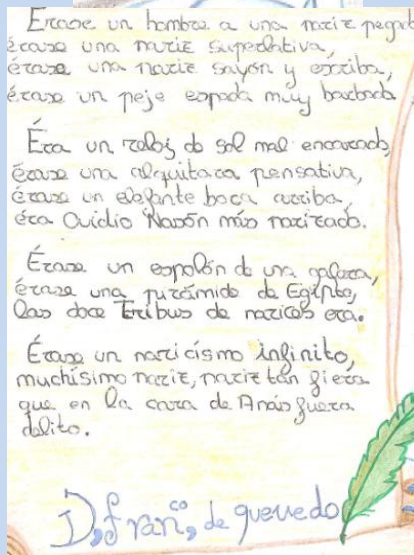 Érase un hombre a una nariz pegad
érase una nariz superlativa,
érase una nariz sayón y escriba,
érase un peje espada muy barbado
Éra un reloj de sol mal encarado,
érase una alquitara pensativa,
érase un elefante boca arriba,
éra Ovidio Nasón más narizado.
Érase un espolón de una galera,
érase una pirámide de Egipto,
las doce Tribus de narices era.
Érase un naricísmo infinito,
muchísimo nariz, nariz tan fiera
que en la cara de Anás fuera
delito.
D, franco, de quevedo